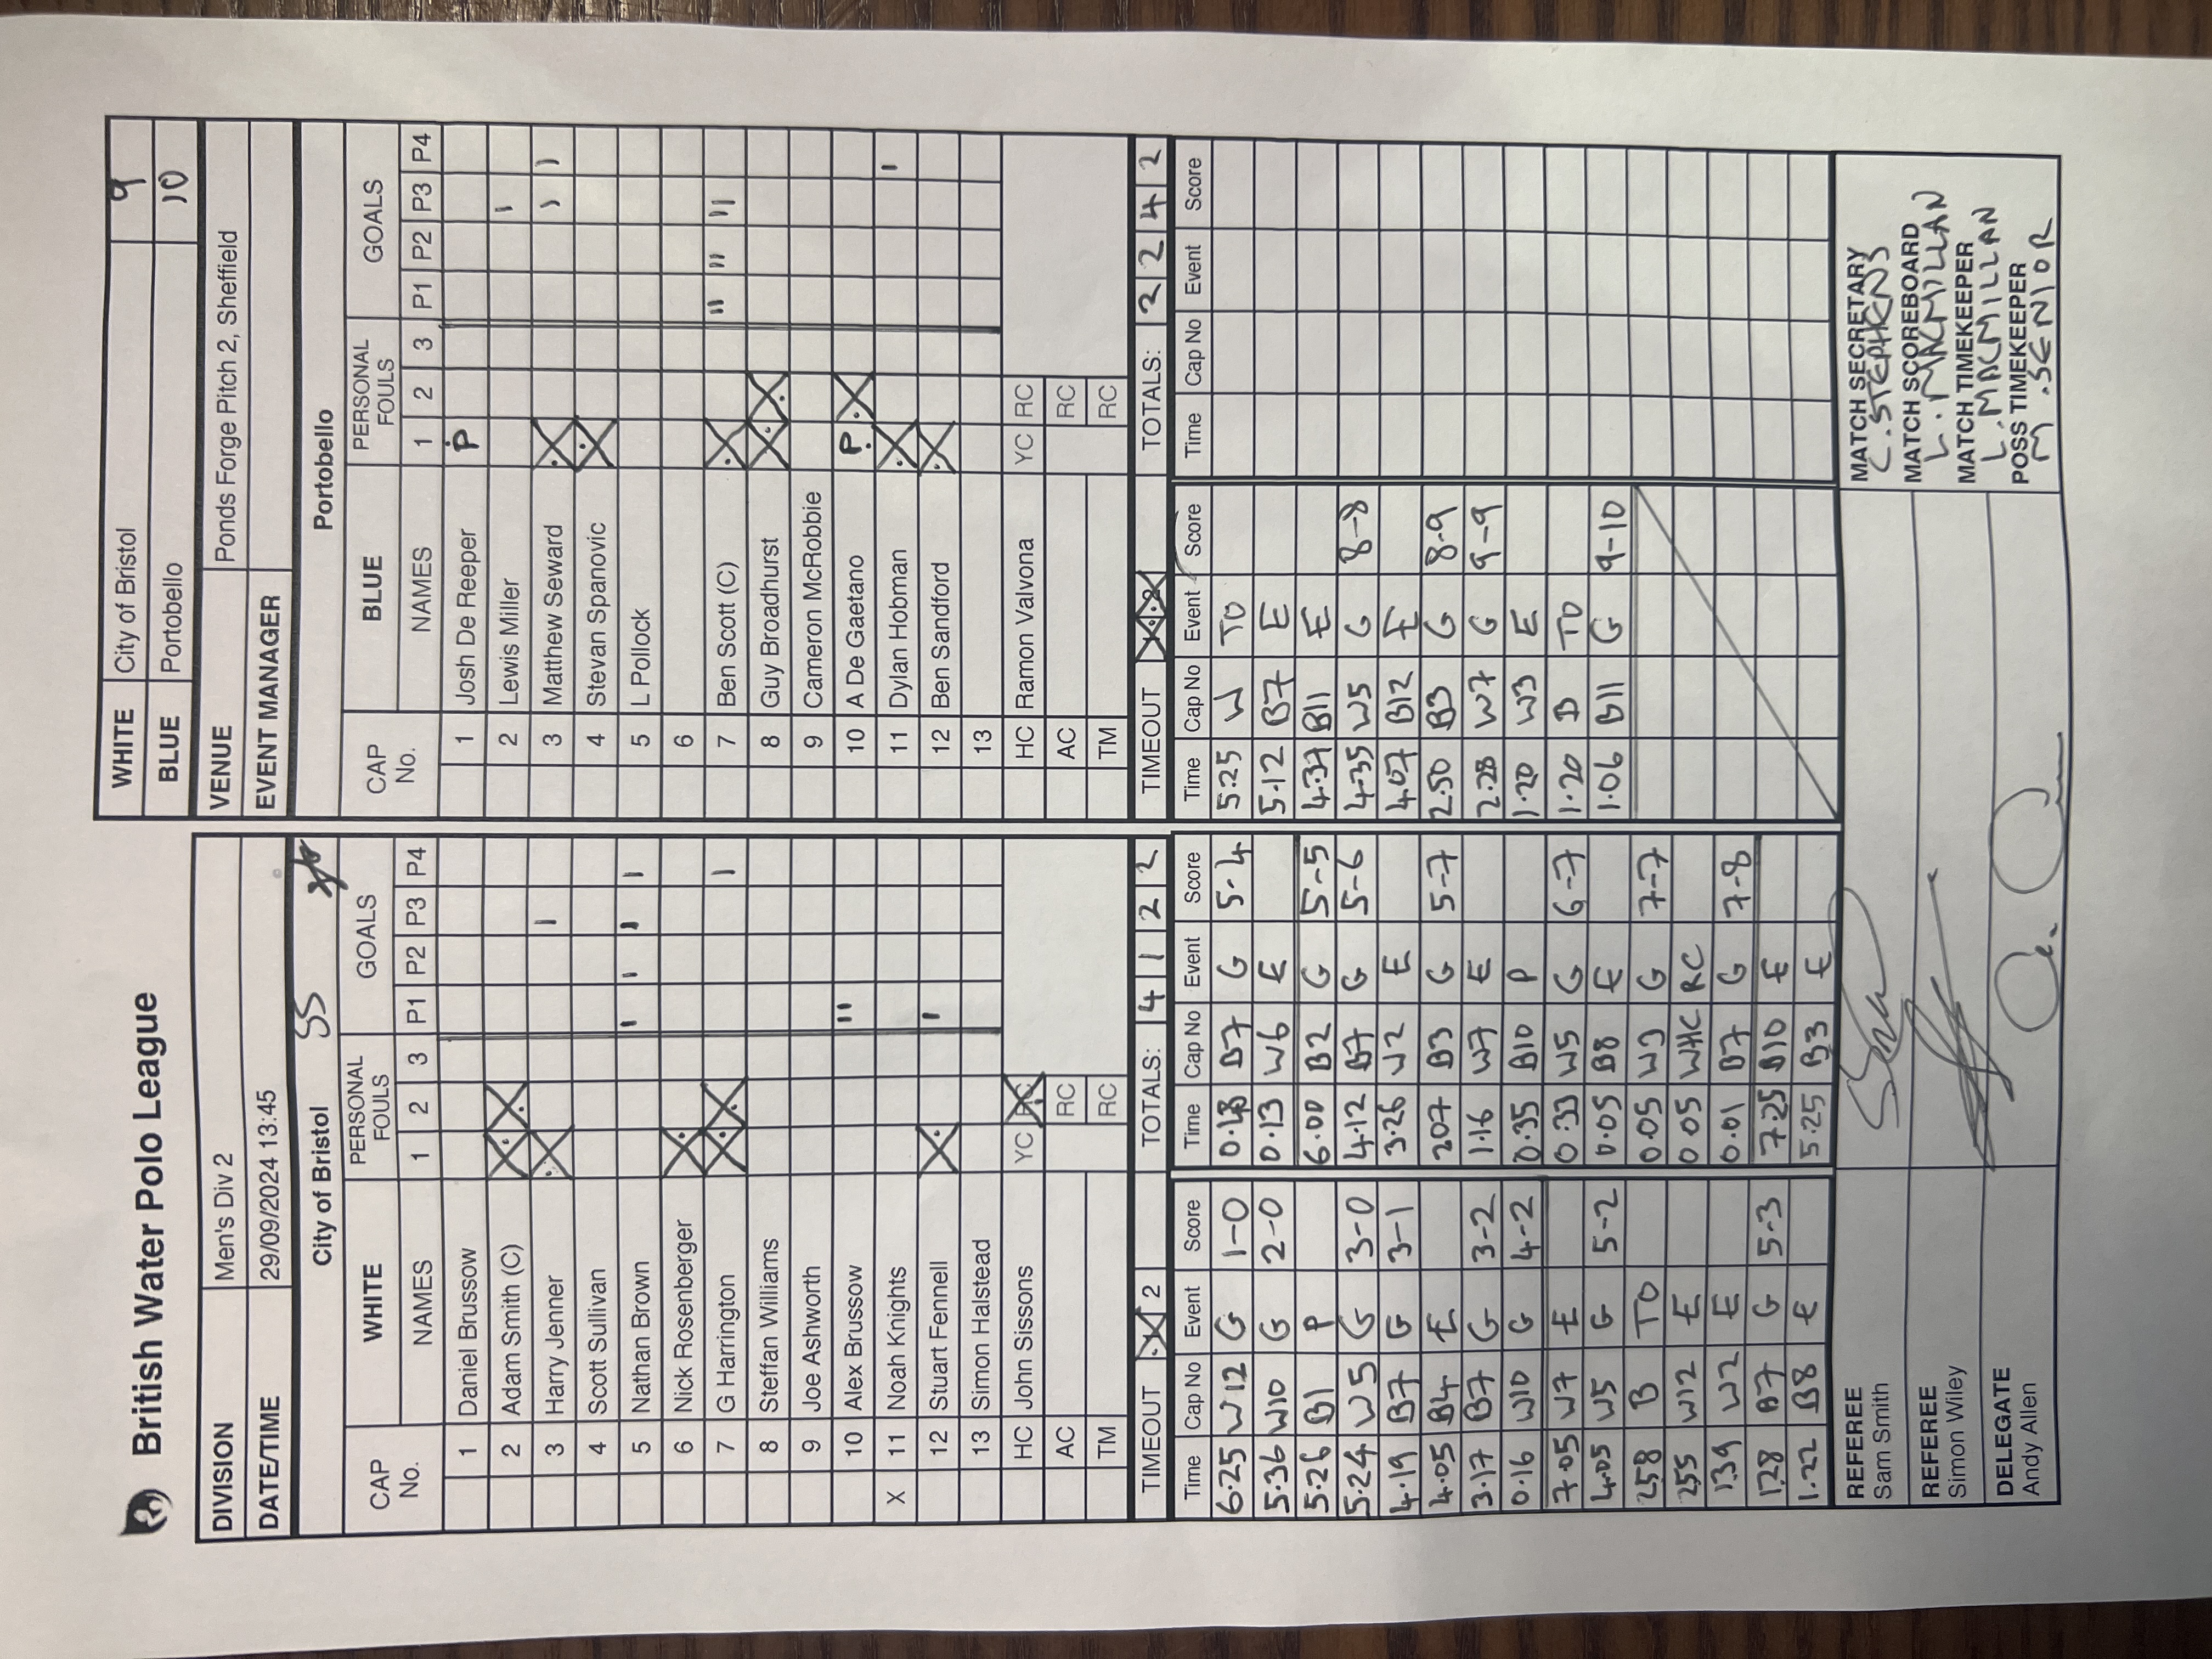 British Water Polo League
WHITE City of Bristol 9
BLUE Portobello 10
DIVISION Men's Div 2
DATE/TIME 29/09/2024 13:45
VENUE Ponds Forge Pitch 2, Sheffield
EVENT MANAGER
City of Bristol SS
CAP No. WHITE NAMES PERSONAL FOULS 1 2 3 GOALS P1 P2 P3 P4
1 Daniel Brussow
2 Adam Smith (C)
3 Harry Jenner
4 Scott Sullivan
5 Nathan Brown
6 Nick Rosenberger
7 G Harrington
8 Steffan Williams
9 Joe Ashworth
10 Alex Brussow
X 11 Noah Knights
12 Stuart Fennell
13 Simon Halstead
HC John Sissons YC RC
AC RC
TM RC
TIMEOUT 2 TOTALS: 4 1 2 2
Portobello
CAP No. BLUE NAMES PERSONAL FOULS 1 2 3 GOALS P1 P2 P3 P4
1 Josh De Reeper P
2 Lewis Miller
3 Matthew Seward
4 Stevan Spanovic
5 L Pollock
6
7 Ben Scott (C)
8 Guy Broadhurst
9 Cameron McRobbie
10 A De Gaetano P
11 Dylan Hobman
12 Ben Sandford
13
HC Ramon Valvona YC RC
AC RC
TM RC
TIMEOUT TOTALS: 2 2 4 2
Time Cap No Event Score
6.25 W12 G 1-0
5.36 W10 G 2-0
5.26 B1 P
5.24 W5 G 3-0
4.19 B7 G 3-1
4.05 B4 E
3.17 B7 G 3-2
0.16 W10 G 4-2
7.05 W7 E
4.05 W5 G 5-2
258 B TO
255 W12 E
1.39 W2 E
1.28 B7 G 5.3
1.22 B8 E
Time Cap No Event Score
0.18 B7 G 5-4
0.13 W6 E
6.00 B2 G 5-5
4.12 B7 G 5-6
3.26 W2 E
207 B3 G 5-7
1.16 W7 E
0.35 B10 P
0.33 W5 G 6-7
0.05 B8 E
0.05 W3 G 7-7
0.05 WHC RC
0.01 B7 G 7-8
7.25 B10 E
5.25 B3 E
Time Cap No Event Score
5.25 W TO
5.12 B7 E
4.37 B11 E
4.35 W5 G 8-8
4.07 B12 E
2.50 B3 G 8-9
2.28 W7 G 9-9
1.20 W3 E
1.20 B TO
1.06 B11 G 9-10
Time Cap No Event Score
REFEREE
Sam Smith
REFEREE
Simon Wiley
DELEGATE
Andy Allen
MATCH SECRETARY
C. STEPHENS
MATCH SCOREBOARD
L. MACMILLAN
MATCH TIMEKEEPER
L. MACMILLAN
POSS TIMEKEEPER
M. SENIOR